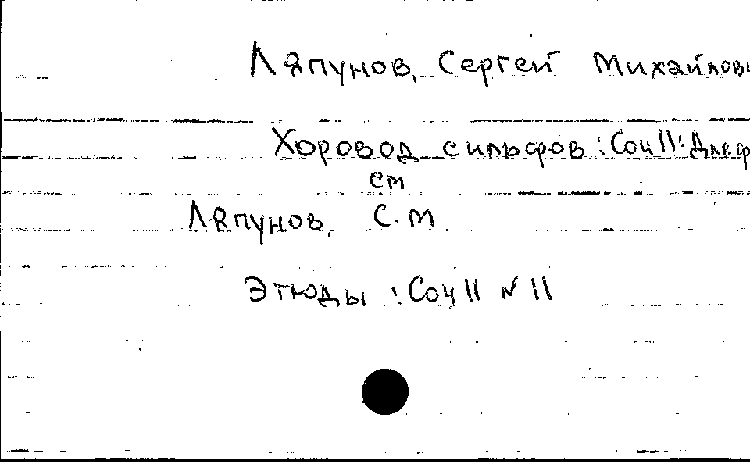 Ляпунов, Сергей Михайлови
Хоровод сильфов : Соч 11 : Для ф
см
Ляпунов, С. М
Этюды : Соч 11 № 11